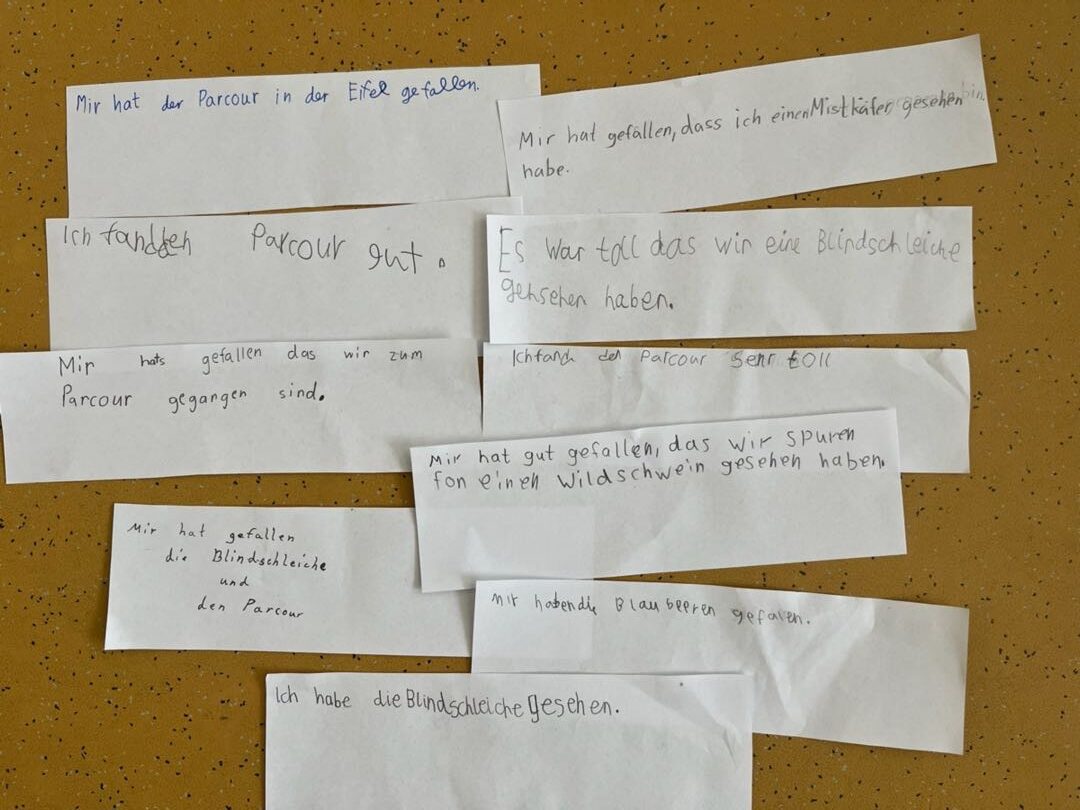 Mir hat der Parcour in der Eifel gefallen.
Mir hat gefallen, dass ich einen Mistkäfer gesehen
habe.
Ich fand den Parcour gut.
Es war toll das wir eine Blindschleiche
gehsehen haben.
Mir hats gefallen das wir zum
Parcour gegangen sind.
Ich fand der Parcour sehr toll
Mir hat gut gefallen, das wir spuren
fon einen Wildschwein gesehen haben.
Mir hat gefallen
die Blindschleiche
und
den Parcour
Mir haben die Blaubeeren gefalen.
Ich habe die Blindschleiche gesehen.